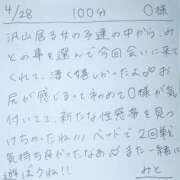 4/28 100分 O様
沢山居る女の子達の中から、み
との事を選んで今回会いに来て
くれて、凄く嬉しかったよ♡お
尻が感じるってわめてO様が気
付いてて、新たな性感帯を見つ
けちゃったね!!! ベッドで2回戦
気持ち良かったなあ♡また一緒に
遊ぼうね!! みと